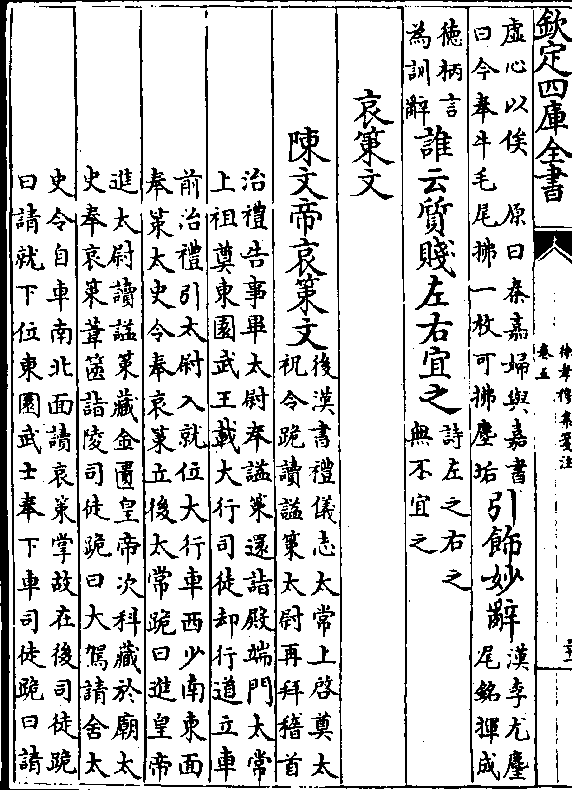 欽定四庫全書
徐孝穆集箋注
卷五
虛心以俟　原曰秦嘉婦與嘉書
曰今奉斗毛尾拂一枚可拂塵垢
引飾妙辭
漢李尤麈
尾銘揮成
德柄言
為訓辭
誰云質賤左右宜之
詩左之右之
無不宜之
哀策文
陳文帝哀策文
後漢書禮儀志太常上啓奠太
祝令跪讀諡策太尉再拜稽首
治禮告事畢太尉奉諡策還詣殿端門太常
上祖奠東園武王載大行司徒却行道立車
前治禮引太尉入就位大行車西少南東面
奉策太史令奉哀策立後太常跪曰進皇帝
進太尉讀諡策藏金匱皇帝次科藏於廟太
史奉哀策葦篋詣陵司徒跪曰大駕請舍太
史令自車南北面讀哀策掌故在後司徒跪
曰請就下位東園武士奉下車司徒跪曰請